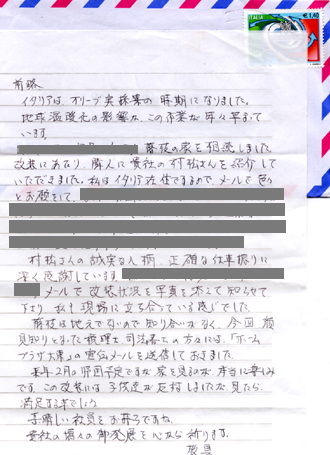 ITALIA €1,40
前略
イタリアは、オリーブ実採集の時期になりました。
地球温暖化の影響か、この作業が年々早まって
います。
藤枝の家を相続しました
改装にあたり、隣人に貴社の村松さんを紹介して
いただきました。私はイタリア在住ですので、メールで色々
とお願をして、
村松さんの誠実な人柄、正確な仕事振りに
深く感謝しています。
メールで改装状況を写真を添えて知らせて
下さり、私も現場に立ち合っている感じでした。
藤枝は地元でないので知り合いがなく、今回顔
見知りとなった税理士、司法書士の方々には、「ホーム
プラザ大東」の宣伝メールを送信しておきました。
来年2月に帰国予定ですが、家を見るのが本当に楽しみ
です。この改装には子供達が反対しましたが、見たら、
満足する事でしょう。
素晴しい社員をお持ちですね。
貴社の益々の御発展を心から祈ります。